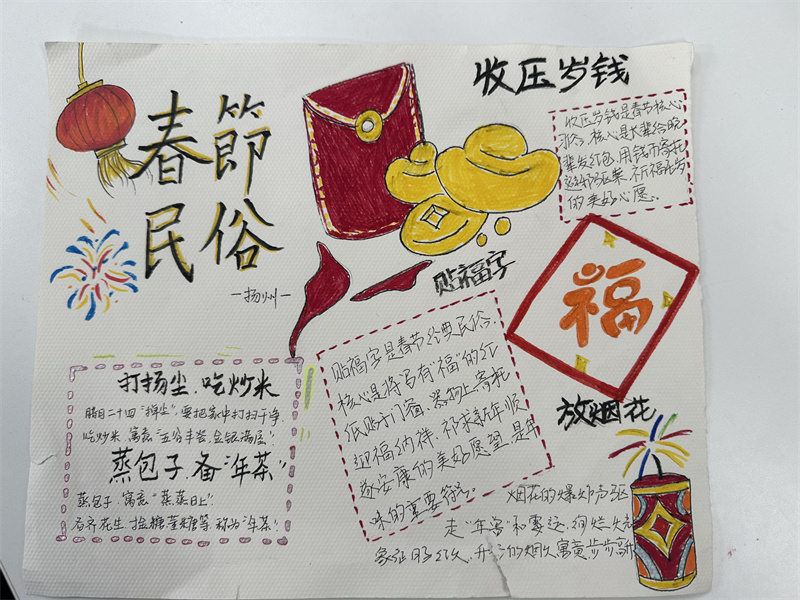 春節
民俗
—扬州—
收压岁钱
收压岁钱是春节核心
习俗,核心是长辈给晚
辈发红包,用钱币寄托
辟邪驱祟、祈福纳岁
的美好心愿。
贴福字
贴福字是春节经典民俗,
核心是将写有“福”的红
纸贴于门窗、器物上寄托
迎福纳祥、祈求新年顺
遂安康的美好愿望,是年
味的重要符号。
福
打扬尘、吃炒米
腊月二十四“掸尘”,要把家中打扫干净.
吃炒米,寓意“五谷丰登,金银满屋”!
蒸包子、备“年茶”
蒸包子,寓意“蒸蒸日上”
备齐花生、 糖等,称为“年茶”!
放烟花
烟花的爆炸声驱
走“年兽”和霉运,绚烂火光
象征日子红火,升 的烟火寓意步步高